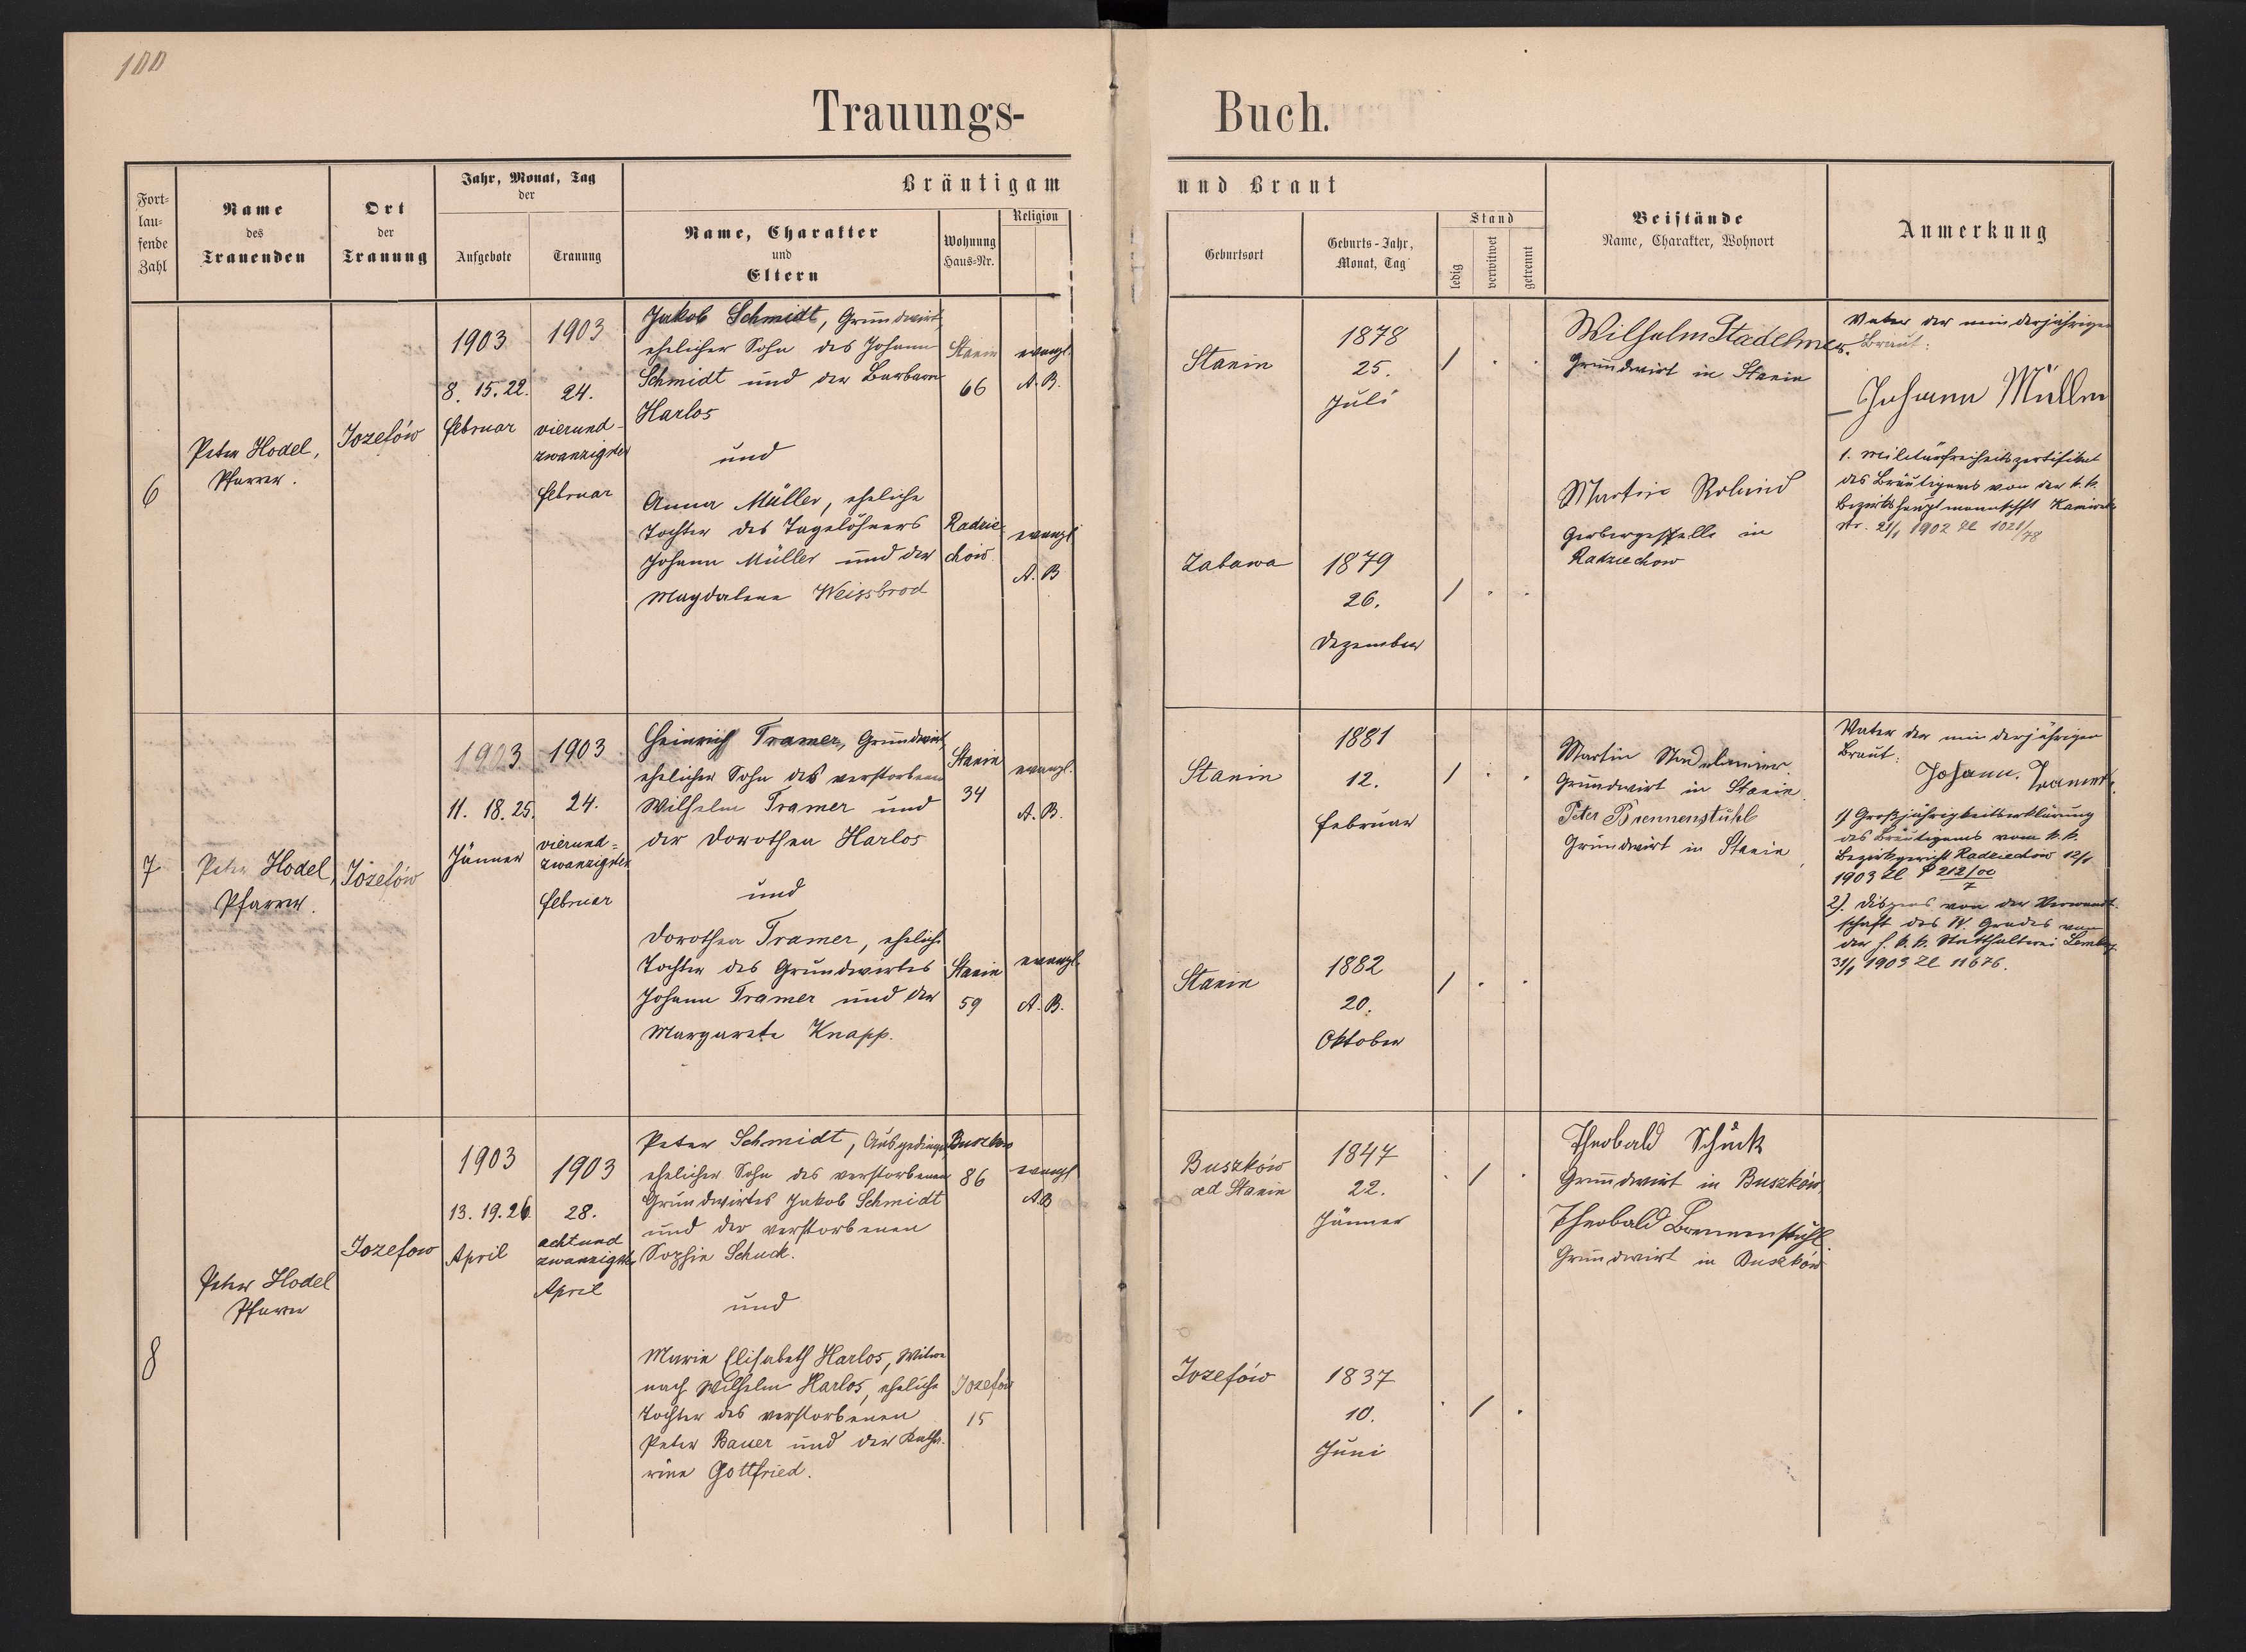 100
Trauungs-
Buch.
Fort-
lau-
fende
Zahl
Name
des
Trauenden
Ort
der
Trauung
Jahr, Monat, Tag
der
Aufgebote
Trauung
Bräutigam
Name, Charakter
und
Eltern
Wohnung
Haus-Nr.
Religion
und Braut
Geburtsort
Geburts-Jahr,
Monat, Tag
Stand
ledig
verwitwet
getrennt
Beistände
Name, Charakter, Wohnort
Anmerkung
6
Peter Hodel,
Pfarrer.
Jozefów
1903
8. 15. 22.
Februar
1903
24.
vierund-
zwanzigster
Februar
Jakob Schmidt, Grundwirt,
ehelicher Sohn des Johann
Schmidt und der Barbara
Harlos
Stanin
66
evangl.
A. B.
und
Anna Müller, eheliche
Tochter des Tagelöhners
Johann Müller und der
Magdalena Weissbrod
Radzie-
chów
evangl
A. B
Stanin
1878
25.
Juli
/ . .
Zabawa
1879
26.
Dezember
/ . .
Wilhelm Stadelmeier.
Grundwirt in Stanin
Martin Roland
Gerbergeselle in
Radziechow
Vater der minderjährigen
Braut:
Johann Müller
1. Militärfreiheitszertifikat
des Bräutigams von der k. k.
Bezirkshauptmannschft
Str. 21/1 1902 Zl 1021/78
7
Peter Hodel,
Pfarrer.
Józefów
1903
11. 18. 25.
Jänner
1903
24.
vierund=
zwanzigster
Februar
Heinrich Tramer, Grundwirt,
ehelicher Sohn des verstorbenen
Wilhelm Tramer und
der Dorothea Harlos
Stanin
34
evangl.
A. B.
und
Dorothea Tramer, eheliche
Tochter des Grundwirtes
Johann Tramer und der
Margarete Knapp.
Stanin
59
evangl.
A. B.
Stanin
1881
12.
Februar
/ . .
Stanin
1882
20.
Oktober
/ . .
Martin Stadelmeier.
Grundwirt in Stanin.
Peter Brennenstuhl
Grundwirt in Stanin,
Vater der minderjährigen
Braut:
Johann. Tramer.
1) Großjährigkeitserklärung
des Bräutigams vom k. k.
Bezirksgericht Radziechów 12/1
1903 Zl P 212/00
7
2). Dispens von der Verwandt-
schaft des IV. Grades von
der h. k. k. Statthalterei Lemberg.
31/1 1903 Zl 11676.
8
Peter Hodel
Pfarrer
Jozefow
1903
13. 19. 26.
April
1903
28.
achtund
zwanzigster
April
Peter Schmidt, Ausgedinger
ehelicher Sohn des verstorbenen
Grundwirtes Jakob Schmidt
und der verstorbenen
Sophie Schuck.
Buszków
86
evangl
A. B
und
Marie Elisabeth Harlos, Witwe
nach Wilhelm Harlos, eheliche
Tochter des verstorbenen
Peter Bauer und der Katha-
rine Gottfried.
Jozefów
15
Buszków
ad Stanin
1847
22.
Jänner
. / .
Jozefów
1837
10.
Juni
. / .
Theobald Schuck
Grundwirt in Buszków,
Theobald Brennenstuhl
Grundwirt in Buszków